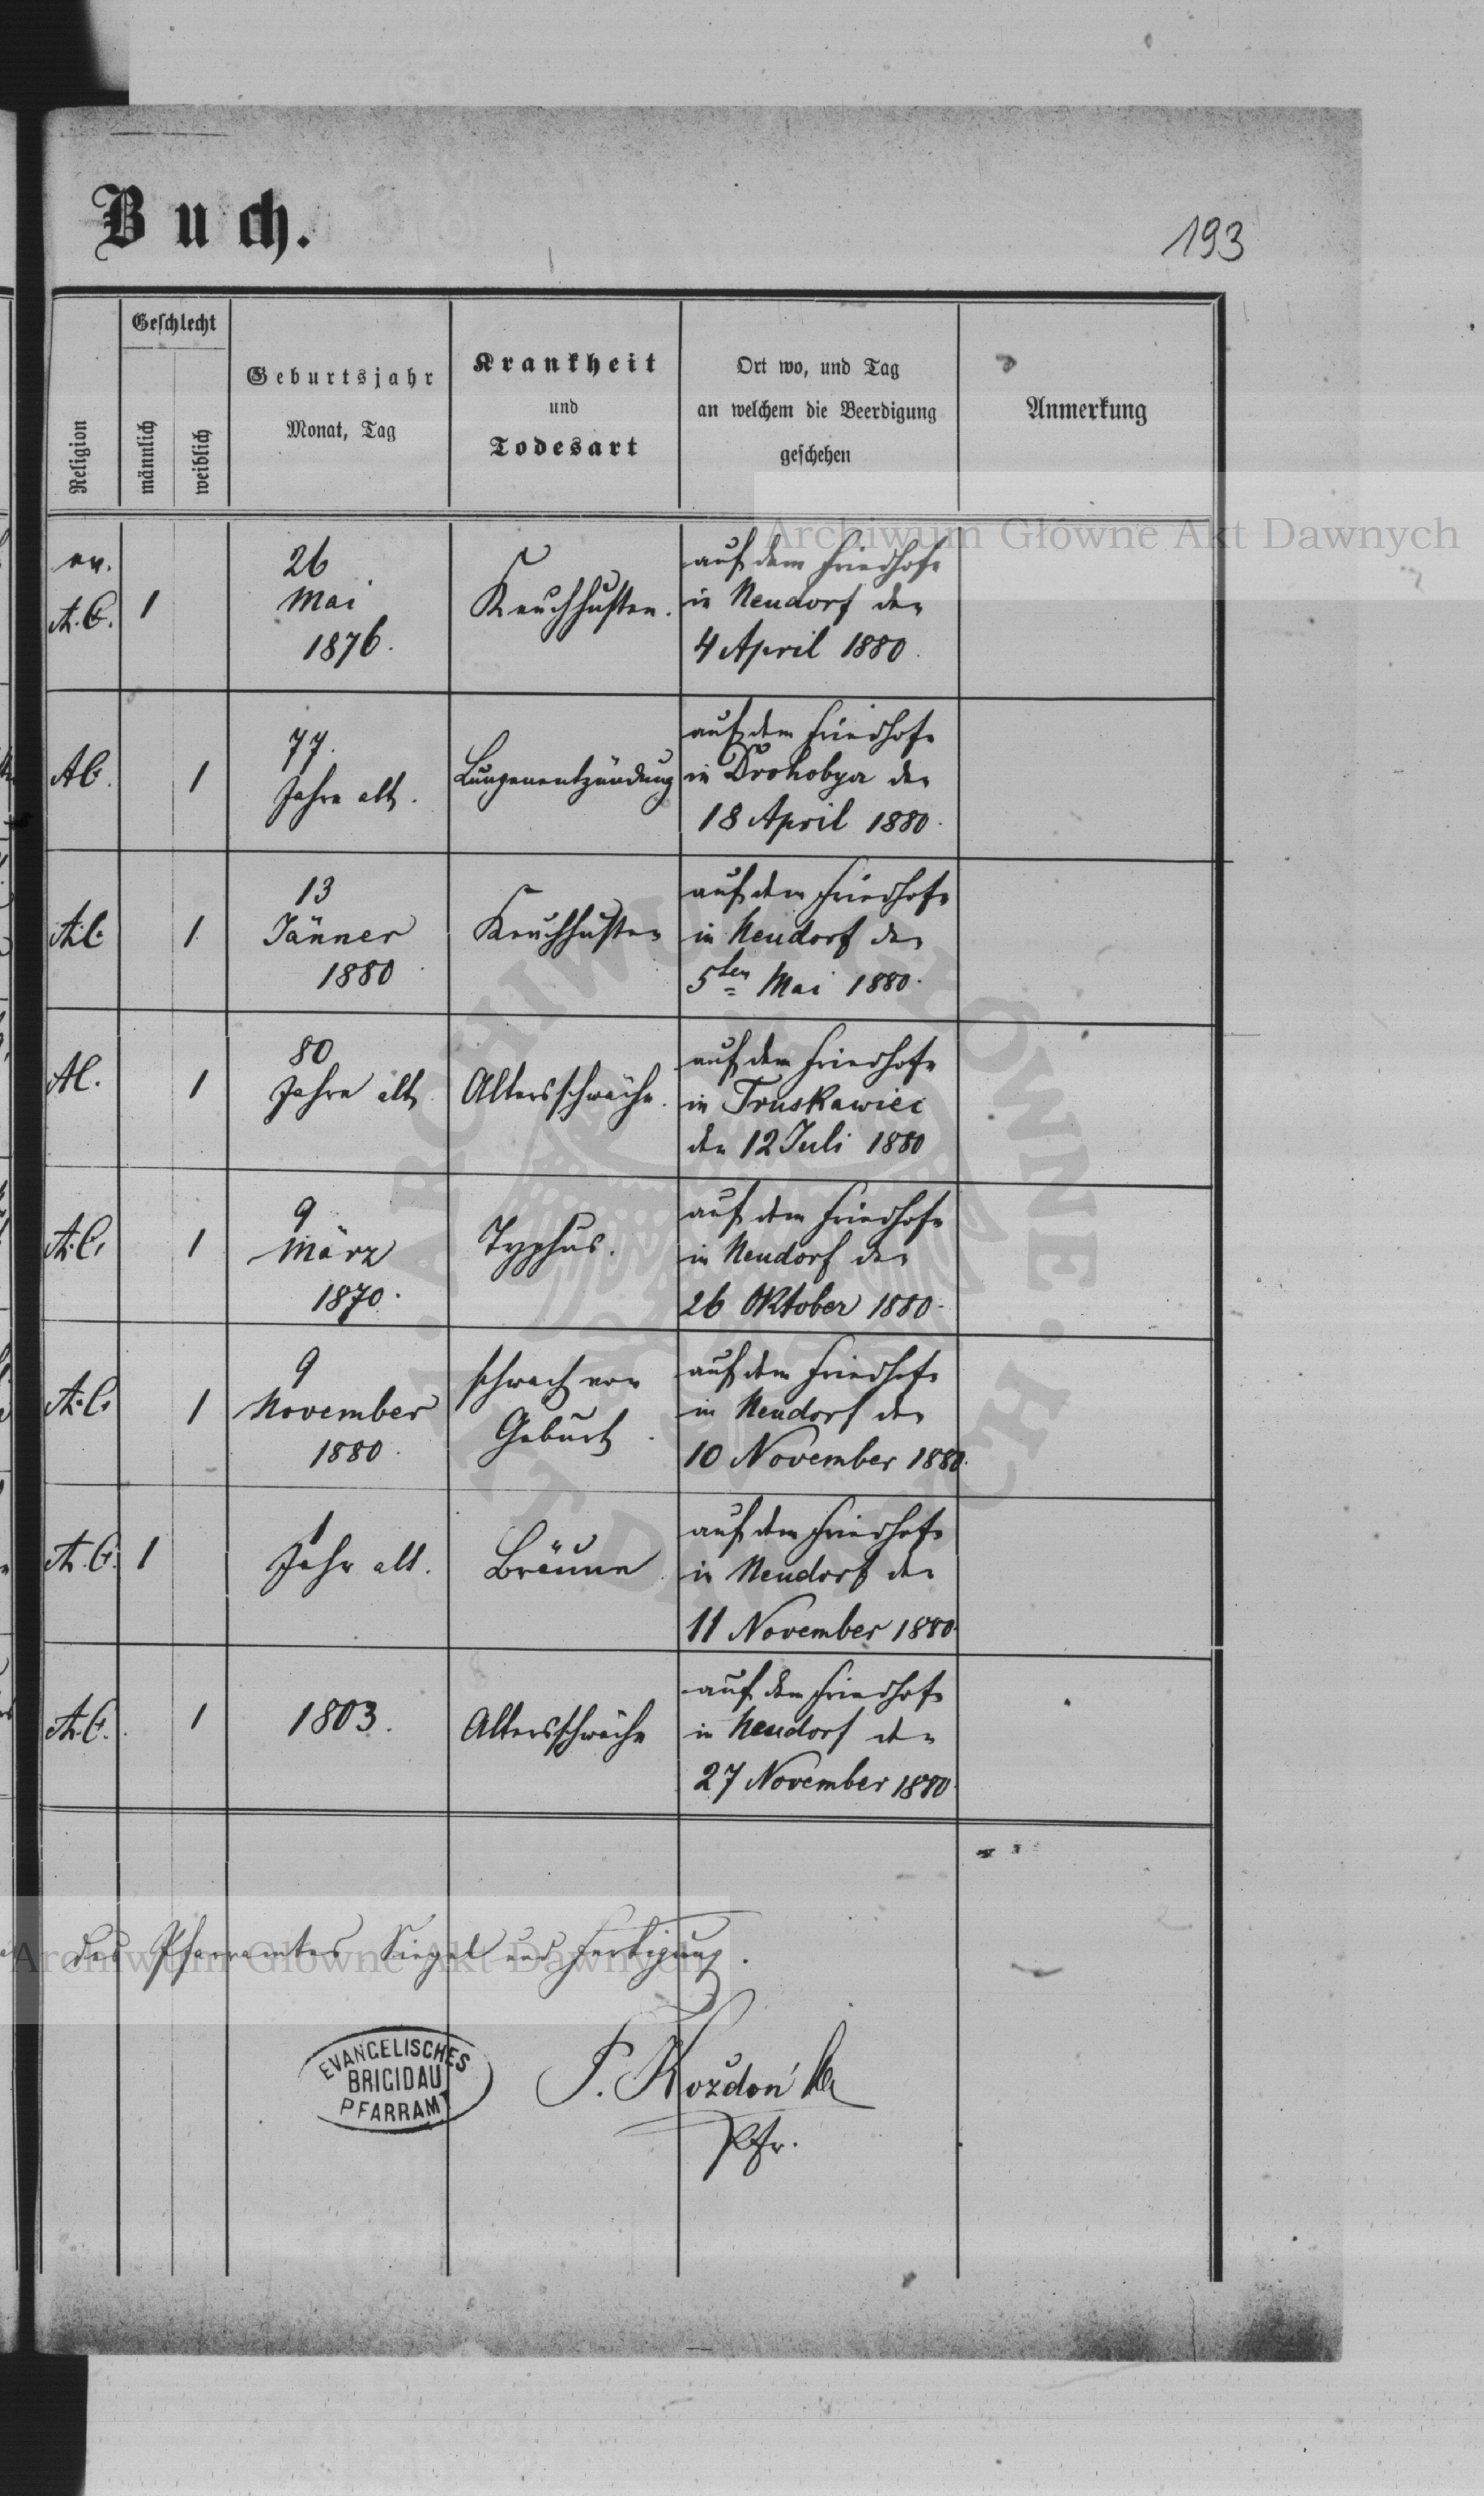 Buch.
193
Religion
Geschlecht
männlich
weiblich
Geburtsjahr
Monat, Tag
Krankheit
und
Todesart
Ort wo, und Tag
an welchem die Beerdigung
geschehen
Anmerkung
ev.
A. C.
1
26
Mai
1876.
Keuchhusten.
auf dem Friedhofe
in Neudorf den
4 April 1880.
AC.
1
77.
Jahre alt.
Lungenentzündung
auf dem Friedhofe
in Drohobycz den
18 April 1880.
A.C.
1.
13
Jänner
1880
Keuchhusten
auf dem Friedhofe
in Neudorf den
5ten Mai 1880.
AC.
1
80
Jahre alt
Altersschwäche.
auf dem Friedhofe
in Truskawiec
den 12 Juli 1880
A.C.
1
9
März
1870.
Typhus.
auf dem Friedhofe
in Neudorf den
26 Oktober 1880.
A.C.
1
9
November
1880.
schwach von
Geburt.
auf dem Friedhofe
in Neudorf den
10 November 1880.
A. C.
1
1
Jahr alt.
Bräune.
auf dem Friedhofe
in Neudorf den
11 November 1880.
A.C.
1
1803.
Altersschwäche
auf dem Friedhofe
in Neudorf den
27 November 1880.
des Pfarramtes Siegel und Fertigung.
EVANGELISCHES
BRIGIDAU
PFARRAMT
P. Kozdoń
Pfr.
Archiwum Główne Akt Dawnych
Archiwum Główne Akt Dawnych
ARCHIWUM GŁÓWNE AKT DAWNYCH